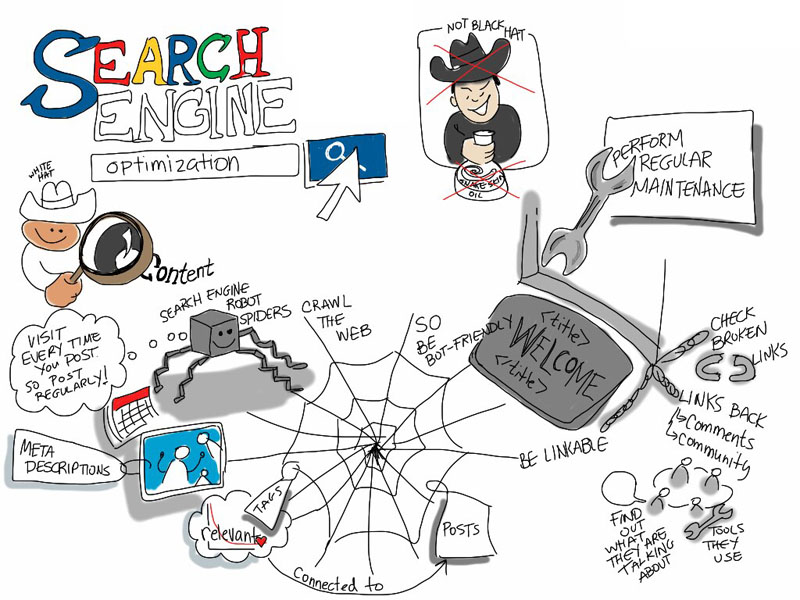 SEARCH
ENGINE
optimization
NOT BLACK HAT
SNAKE SKIN
OIL
PERFORM
REGULAR
MAINTENANCE
WHITE
HAT
Content
SEARCH ENGINE
ROBOT
SPIDERS
CRAWL
THE
WEB
SO
BE
BOT-FRIENDLY
<title>
WELCOME
</title>
CHECK
BROKEN
LINKS
VISIT
EVERY TIME
YOU POST.
SO POST
REGULARLY!
LINKS BACK
↳ Comments
↳ Community
META
DESCRIPTIONS
BE LINKABLE
TAGS
relevant
POSTS
Connected to
FIND
OUT
WHAT
THEY ARE
TALKING
ABOUT
TOOLS
THEY
USE